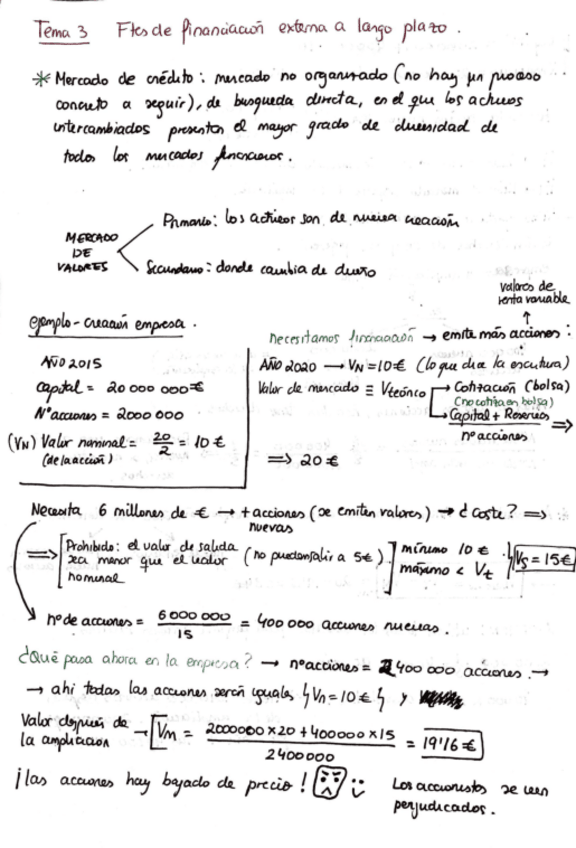 Tema 3 Ftes de financiación externa a largo plazo.
* Mercado de crédito: mercado no organizado (no hay un proceso
concreto a seguir), de busqueda directa, en el que los activos
intercambiados presentan el mayor grado de diversidad de
todos los mercados financieros.
MERCADO DE VALORES
Primario: los activos son de nueva creación
Secundario: donde cambia de dueño
ejemplo - creación empresa.
AÑO 2015
Capital = 20 000 000 €
Nº acciones = 2000 000
(VN) Valor nominal = 20/2 = 10 €
(de la acción)
valores de
renta variable
↑
necesitamos financiación → emite más acciones:
AÑO 2020 → VN = 10€ (lo que dice la escritura)
Valor de mercado ≡ Vteórico → Cotización (bolsa)
(no cotiza en bolsa)
→ Capital + Reservas ⇒
nº acciones
⇒ 20 €
Necesita 6 millones de € → + acciones (se emiten valores) → ¿Coste? ⇒
nuevas
⇒ [Prohibido: el valor de salida
sea menor que el valor
nominal
(no pueden salir a 5€)] mínimo 10 €
máximo < Vt
Vs = 15€
nº de acciones = 6 000 000 / 15 = 400 000 acciones nuevas.
¿Qué pasa ahora en la empresa? → nº acciones = 2 400 000 acciones. →
→ ahí todas las acciones serán iguales ϟ Vn = 10 € ϟ y
Valor después de
la ampliación → [Vm = 2000000 x 20 + 400000 x 15 / 2400000 = 19'16 €
¡las acciones hay bajado de precio! Los accionistas se ven
perjudicados.